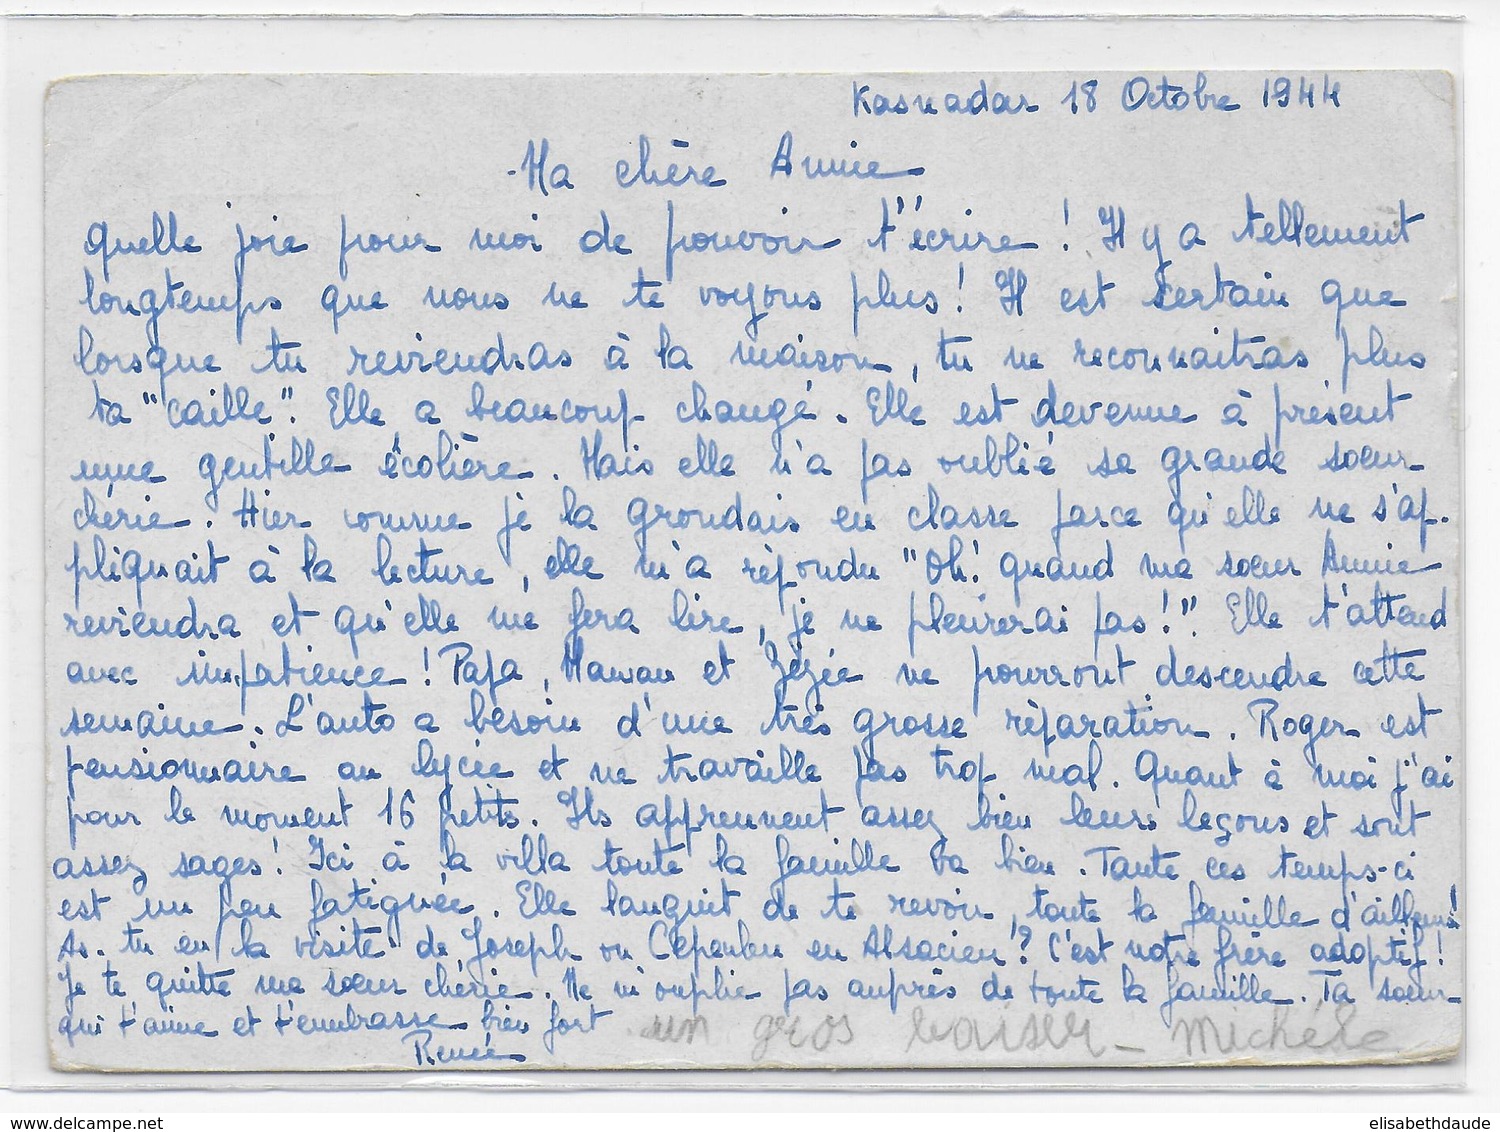 Kasnadar 18 Octobre 1944
Ma chère Annie
Quelle joie pour moi de pouvoir t'écrire ! Il y a tellement
longtemps que nous ne te voyons plus ! Il est certain que
lorsque tu reviendras à la maison, tu ne reconnaitras plus
ta "caille". Elle a beaucoup changé. Elle est devenue à présent
une gentille écolière. Mais elle n'a pas oublié sa grande sœur
chérie. Hier comme je la grondais en classe parce qu'elle ne s'ap-
pliquait à la lecture, elle m'a répondu "Oh! quand ma sœur Annie
reviendra et qu'elle me fera lire, je ne pleurerai pas !". Elle t'attend
avec impatience ! Papa, Maman et Zézée ne pourront descendre cette
semaine. L'auto a besoin d'une très grosse réparation. Roger est
pensionnaire au lycée et ne travaille pas trop mal. Quant à moi j'ai
pour le moment 16 petits. Ils apprennent assez bien leurs leçons et sont
assez sages ! Ici à la villa toute la famille va bien. Tante ces temps-ci
est un peu fatiguée. Elle languit de te revoir, toute la famille d'ailleurs!
As-tu eu la visite de Joseph ou en Alsacien ? C'est notre frère adoptif !
Je te quitte ma sœur chérie. Ne m'oublie pas auprès de toute la famille. Ta sœur
qui t'aime et t'embrasse bien fort
un gros baiser - Michèle
Renée
delcampe.net
elisabethdaude